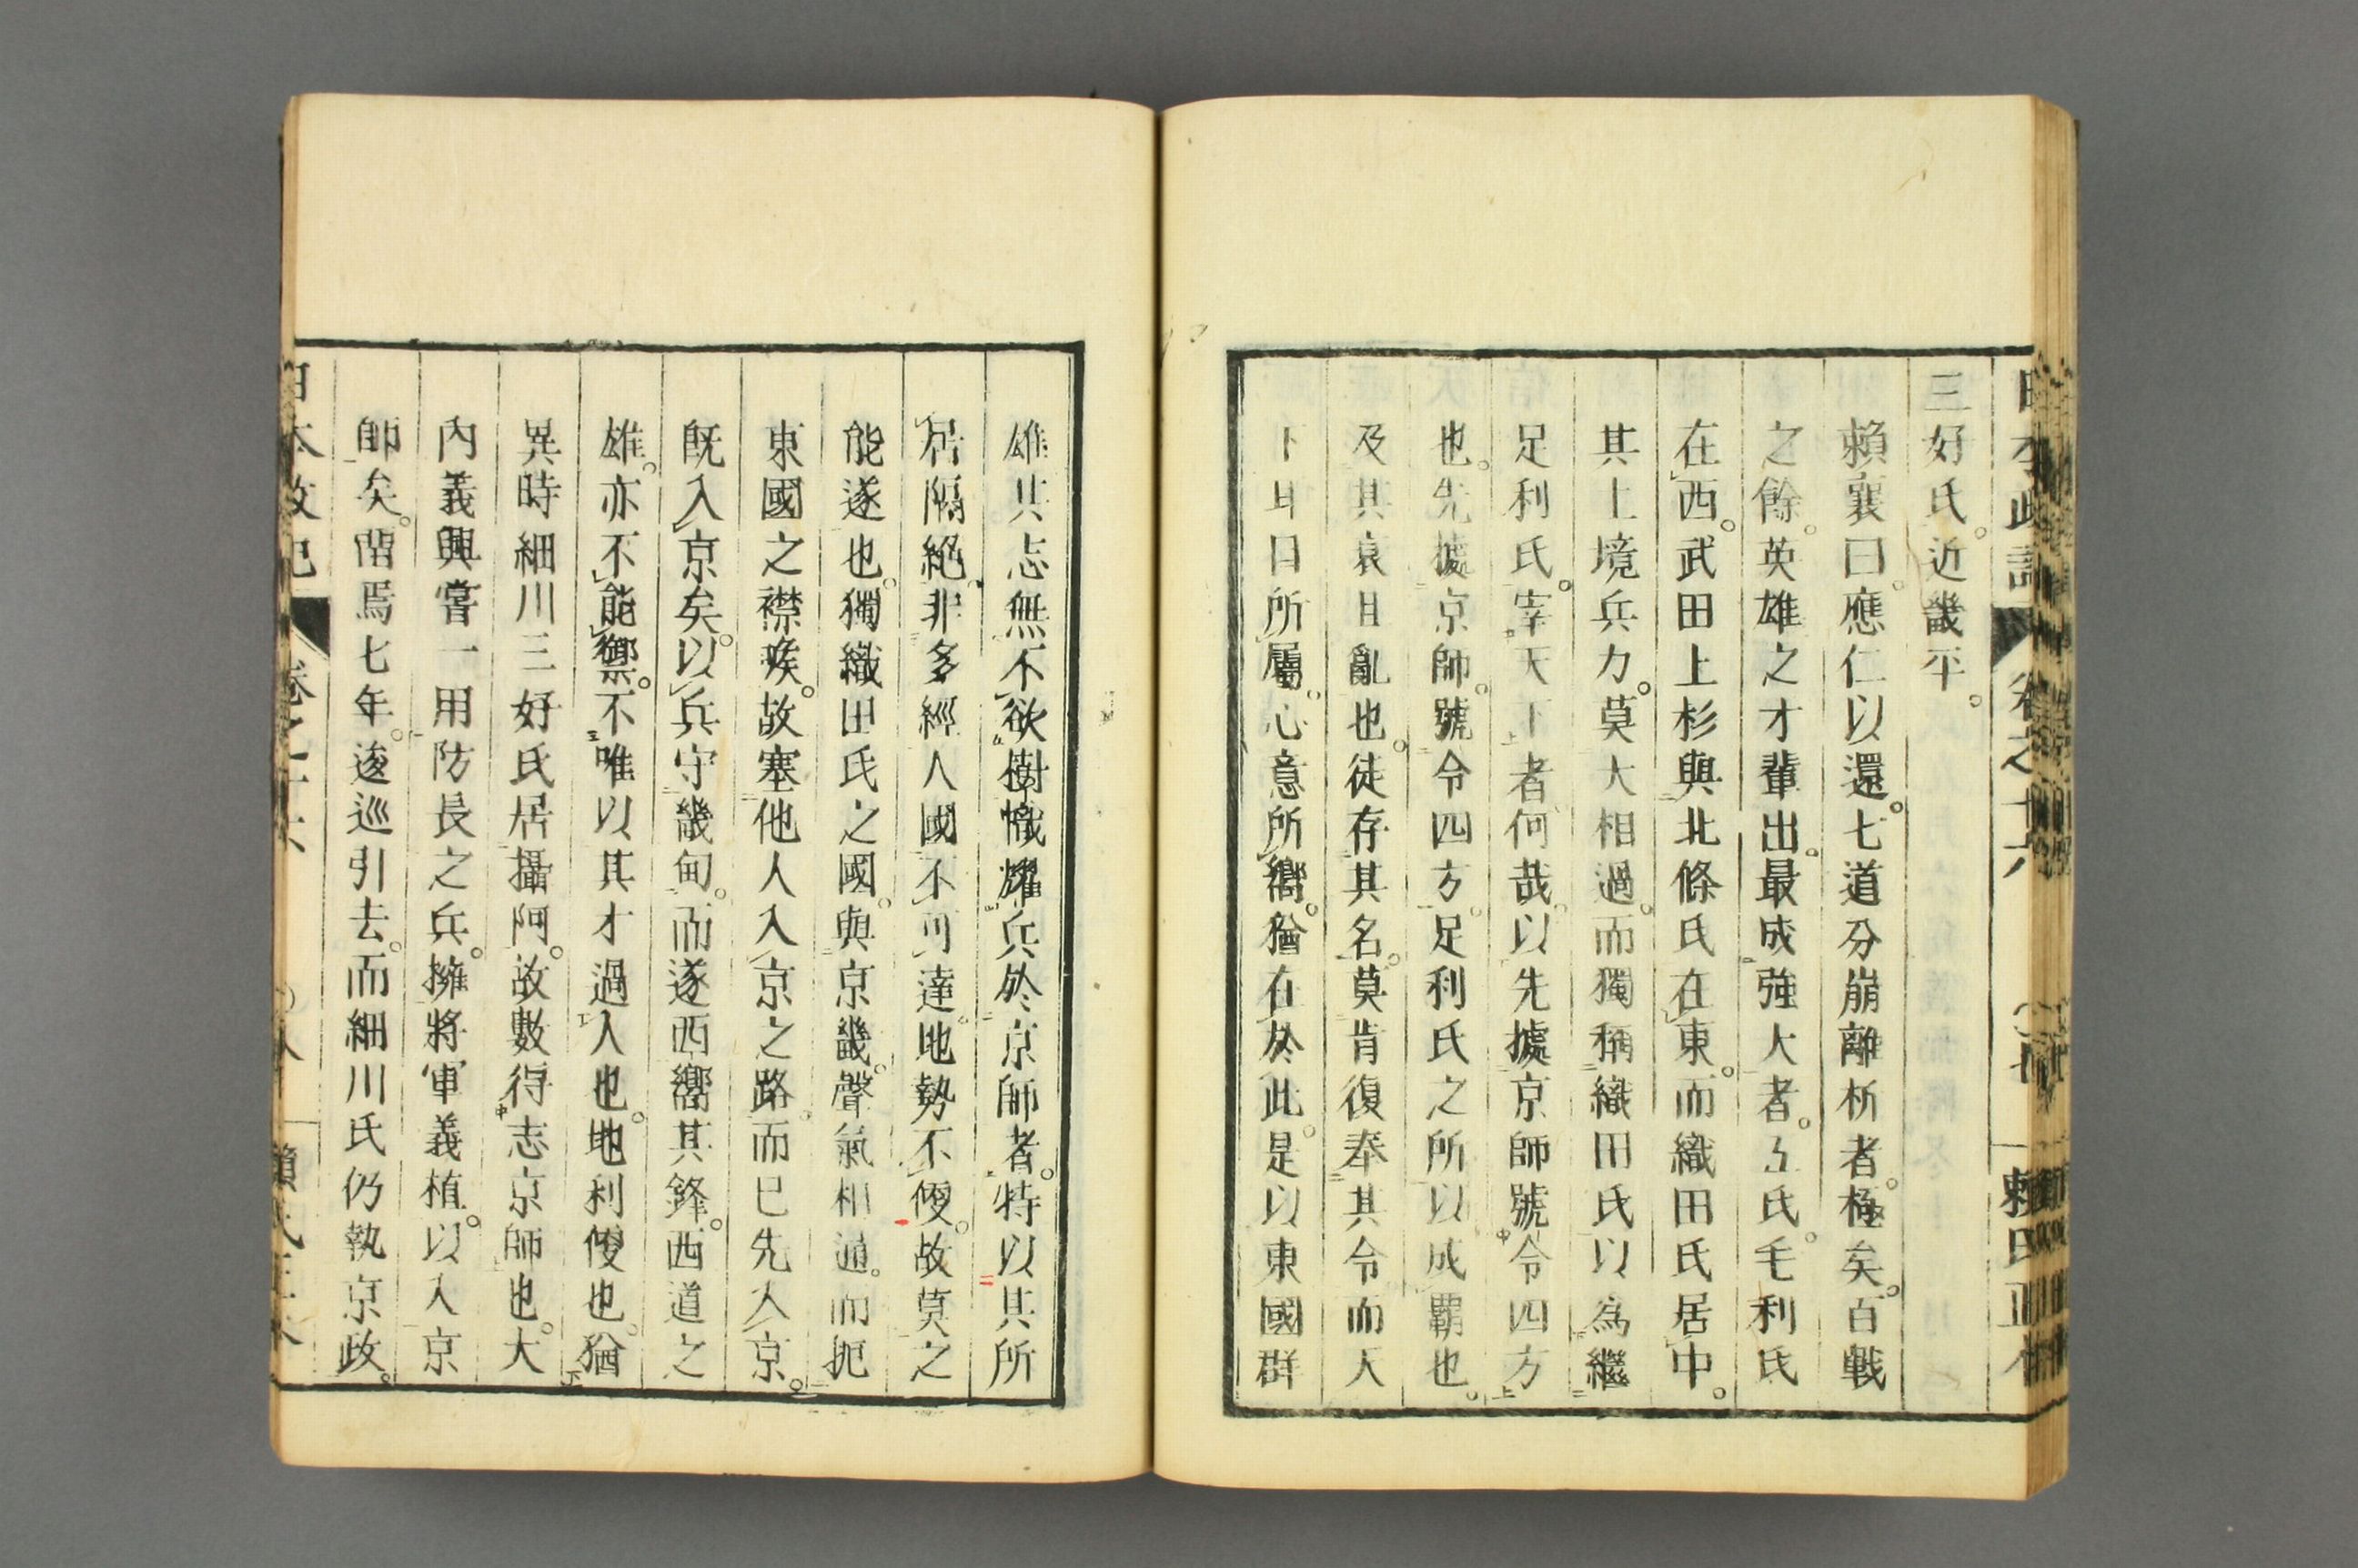 三好氏。近畿平。
賴襄曰。應仁以還。七道分崩離析者。極矣。百戰
之餘。英雄之才輩出。最成強大者。五氏。毛利氏
在西。武田上杉與北條氏在東。而織田氏居中。
其土境兵力。莫大相過。而獨稱織田氏以為繼
足利氏。宰天下者。何哉。以先據京師號令四方
也。先據京師。號令四方。足利氏之所以成霸也。
及其衰且亂也。徒存其名。莫肯復奉其令。而天
下耳目所屬。心意所嚮。猶在於此。是以東國群
雄其志無不欲樹幟耀兵於京師者。特以其所
居隔絕。非多經人國不可達。地勢不便。故莫之
能遂也。獨織田氏之國。與京畿。聲氣相通。而扼
東國之襟喉。故塞他人入京之路。而已先入京。
既入京矣。以兵守畿甸。而遂西嚮其鋒。西道之
雄。亦不能禦。不唯以其才過人也。地利便也。猶
異時細川三好氏居攝阿。故數得志京師也。大
內義興嘗一用防長之兵。擁將軍義植。以入京
師矣。閱焉七年。逡巡引去。而細川氏仍執京政。